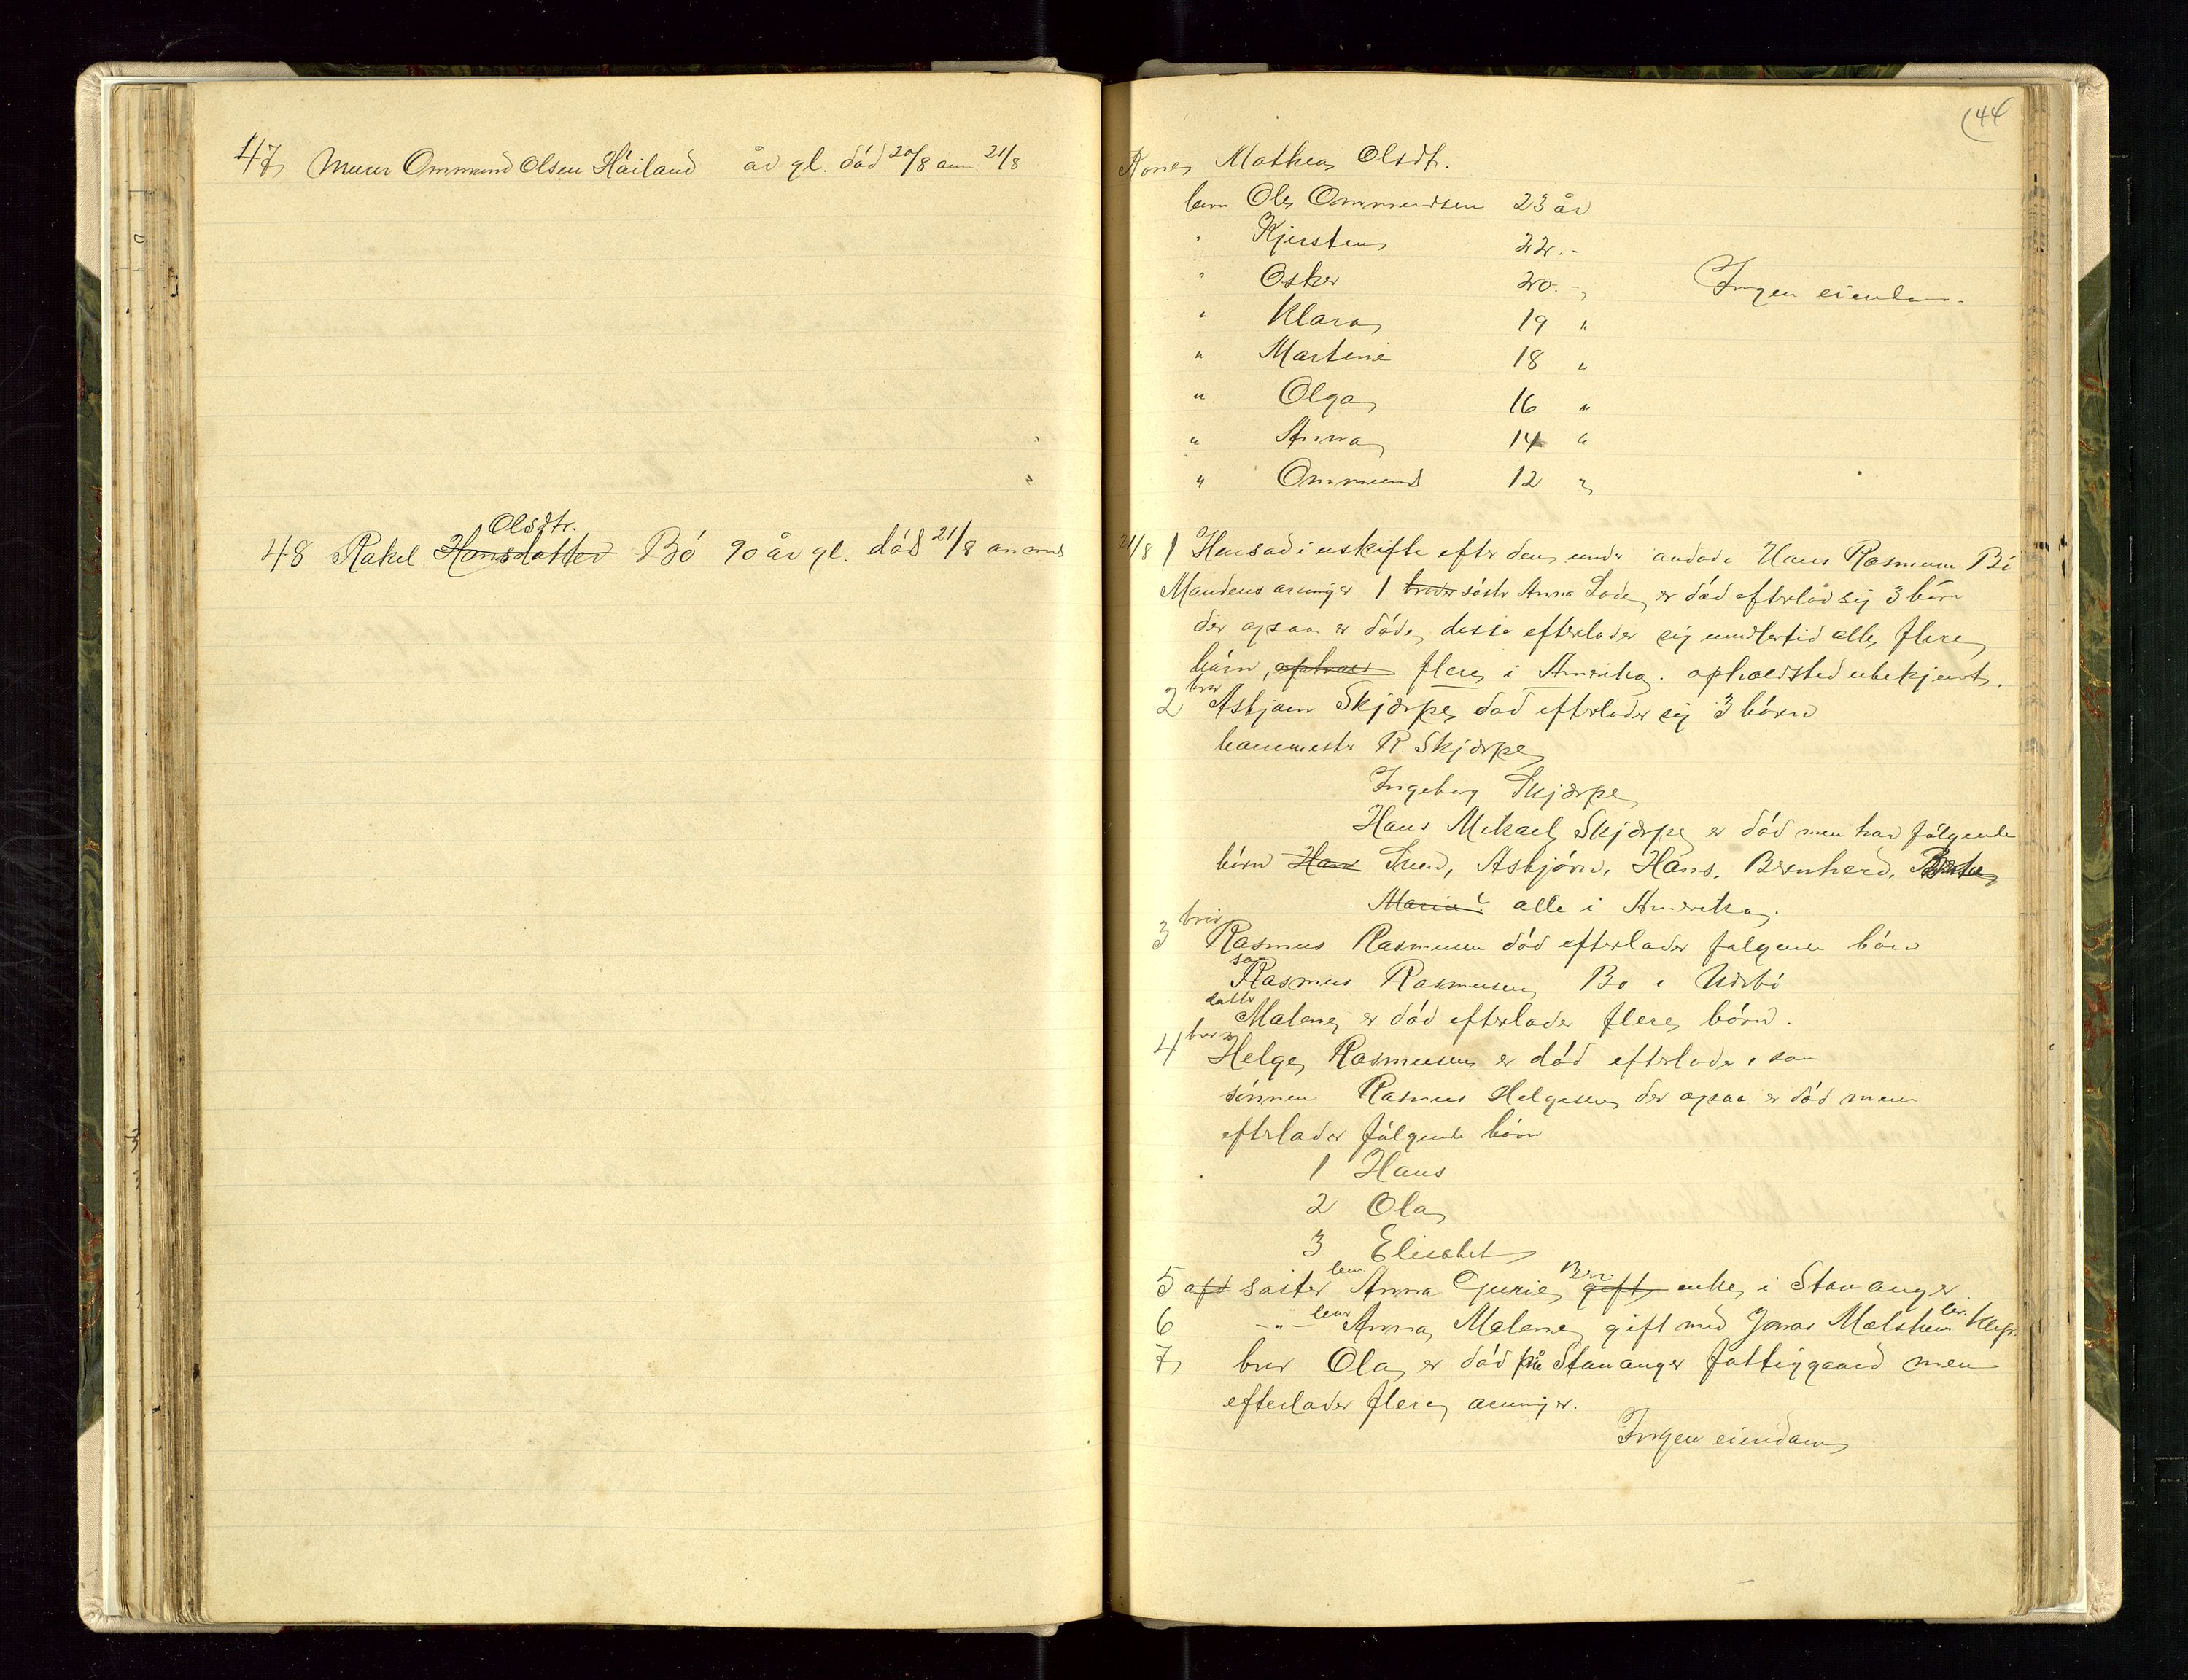 47 Murer Ommund Olsen Håiland år gl. död 20/8 anm. 21/8
Olsdtr.
48 Rakel Hansdatter Bó 90 år gl. död 21/8 anmd
44
Kone Mathea Olsdt.
barn Ole Ommundsen 23 år
" Kjersten 22 . -
" Osker 20. - Ingen eiendom.
" Klara 19 "
" Martine 18 "
" Olga 16 "
" Anna 14 "
" Ommund 12 "
21/8 1 Hensad i uskifte efter den mand Hans Rasmusen Bö
Mandens arvinger 1 broder söster Anna Lode er död efterlod sig 3 börn
der ogsaa er döde, disse efterlader sig imidlertid alle flere
börn, flere i Amerika. opholdsted ubekjent.
2 bror Asbjørn Skjærpe död efterlader sig 3 börn
R. Skjærpe
Ingeborg Skjærpe
Hans Mikael Skjærpe er död men har fölgende
börn Hans Sven, Asbjörn, Hans, Bernherd,
Marie alle i Amerika.
3 bror Rasmus Rasmusen död efterlader fölgende börn
sön Rasmus Rasmusen Bo i
datter Malene er död efterlader flere börn.
4 bror Helge Rasmusen er död efterlader 1 sön
sönnen Rasmus Helgesen der ogsaa er död men
efterlader fölgende börn
1 Hans
2 Ola
3 Elisabet
5 söster Anna Gurie gift enke i Stavanger
6 - " - Anna Malene gift med Jonas Klep.
7 bror Ola er död på Stavanger fattiggaard men
efterlader flere arvinger.
Ingen eiendom